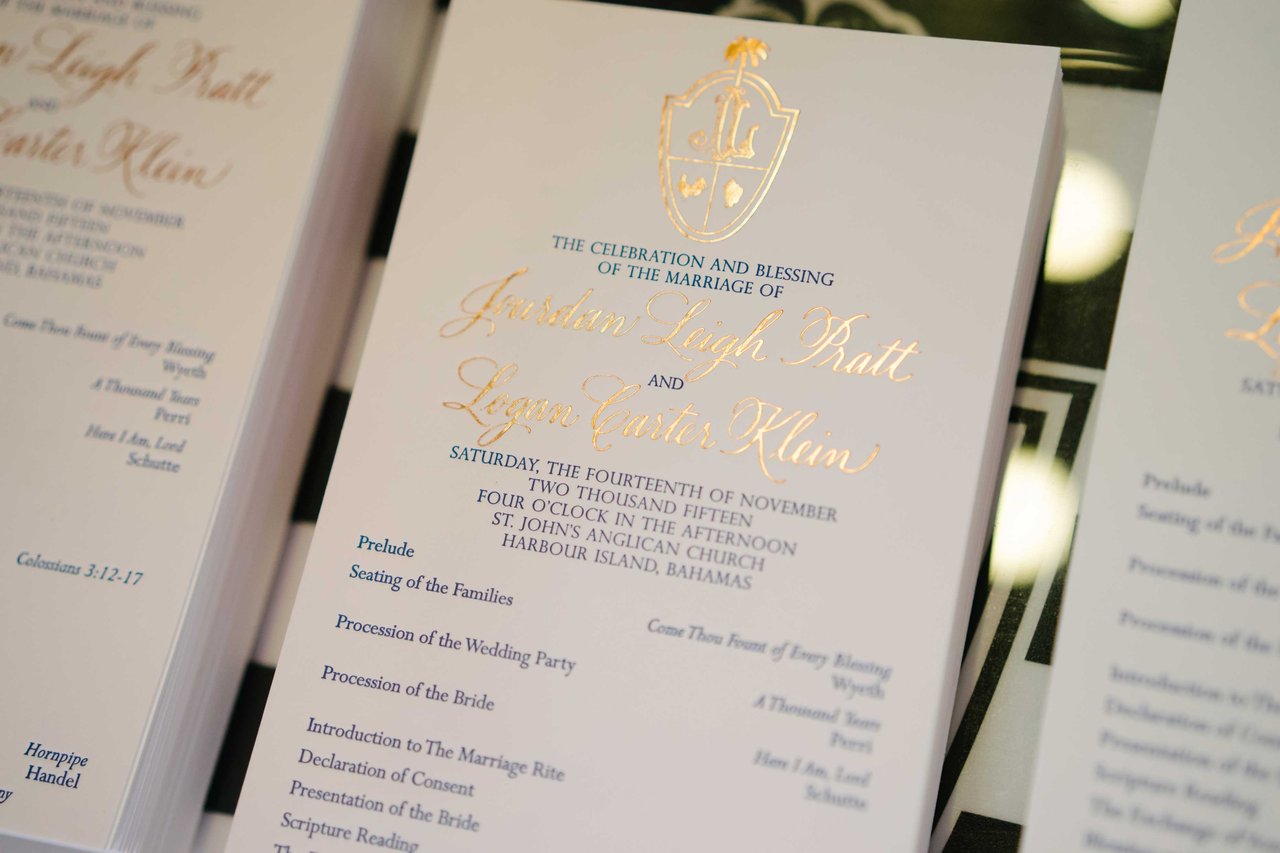 THE MARRIAGE OF
Leigh Pratt
AND
Carter Klein
OF NOVEMBER
FIFTEEN
THE AFTERNOON
CHURCH
BAHAMAS
Come Thou Fount of Every Blessing
Wyeth
A Thousand Years
Perri
Here I Am, Lord
Schutte
Colossians 3:12-17
Hornpipe
Handel
JL
THE CELEBRATION AND BLESSING
OF THE MARRIAGE OF
Jourdan Leigh Pratt
AND
Logan Carter Klein
SATURDAY, THE FOURTEENTH OF NOVEMBER
TWO THOUSAND FIFTEEN
FOUR O'CLOCK IN THE AFTERNOON
ST. JOHN'S ANGLICAN CHURCH
HARBOUR ISLAND, BAHAMAS
Prelude
Seating of the Families
Come Thou Fount of Every Blessing
Wyeth
Procession of the Wedding Party
A Thousand Years
Perri
Procession of the Bride
Here I Am, Lord
Schutte
Introduction to The Marriage Rite
Declaration of Consent
Presentation of the Bride
Scripture Reading
Prelude
Seating of the
Procession of the
Procession of the
Introduction to
Declaration of
Presentation of the
Scripture Reading
The Exchange of